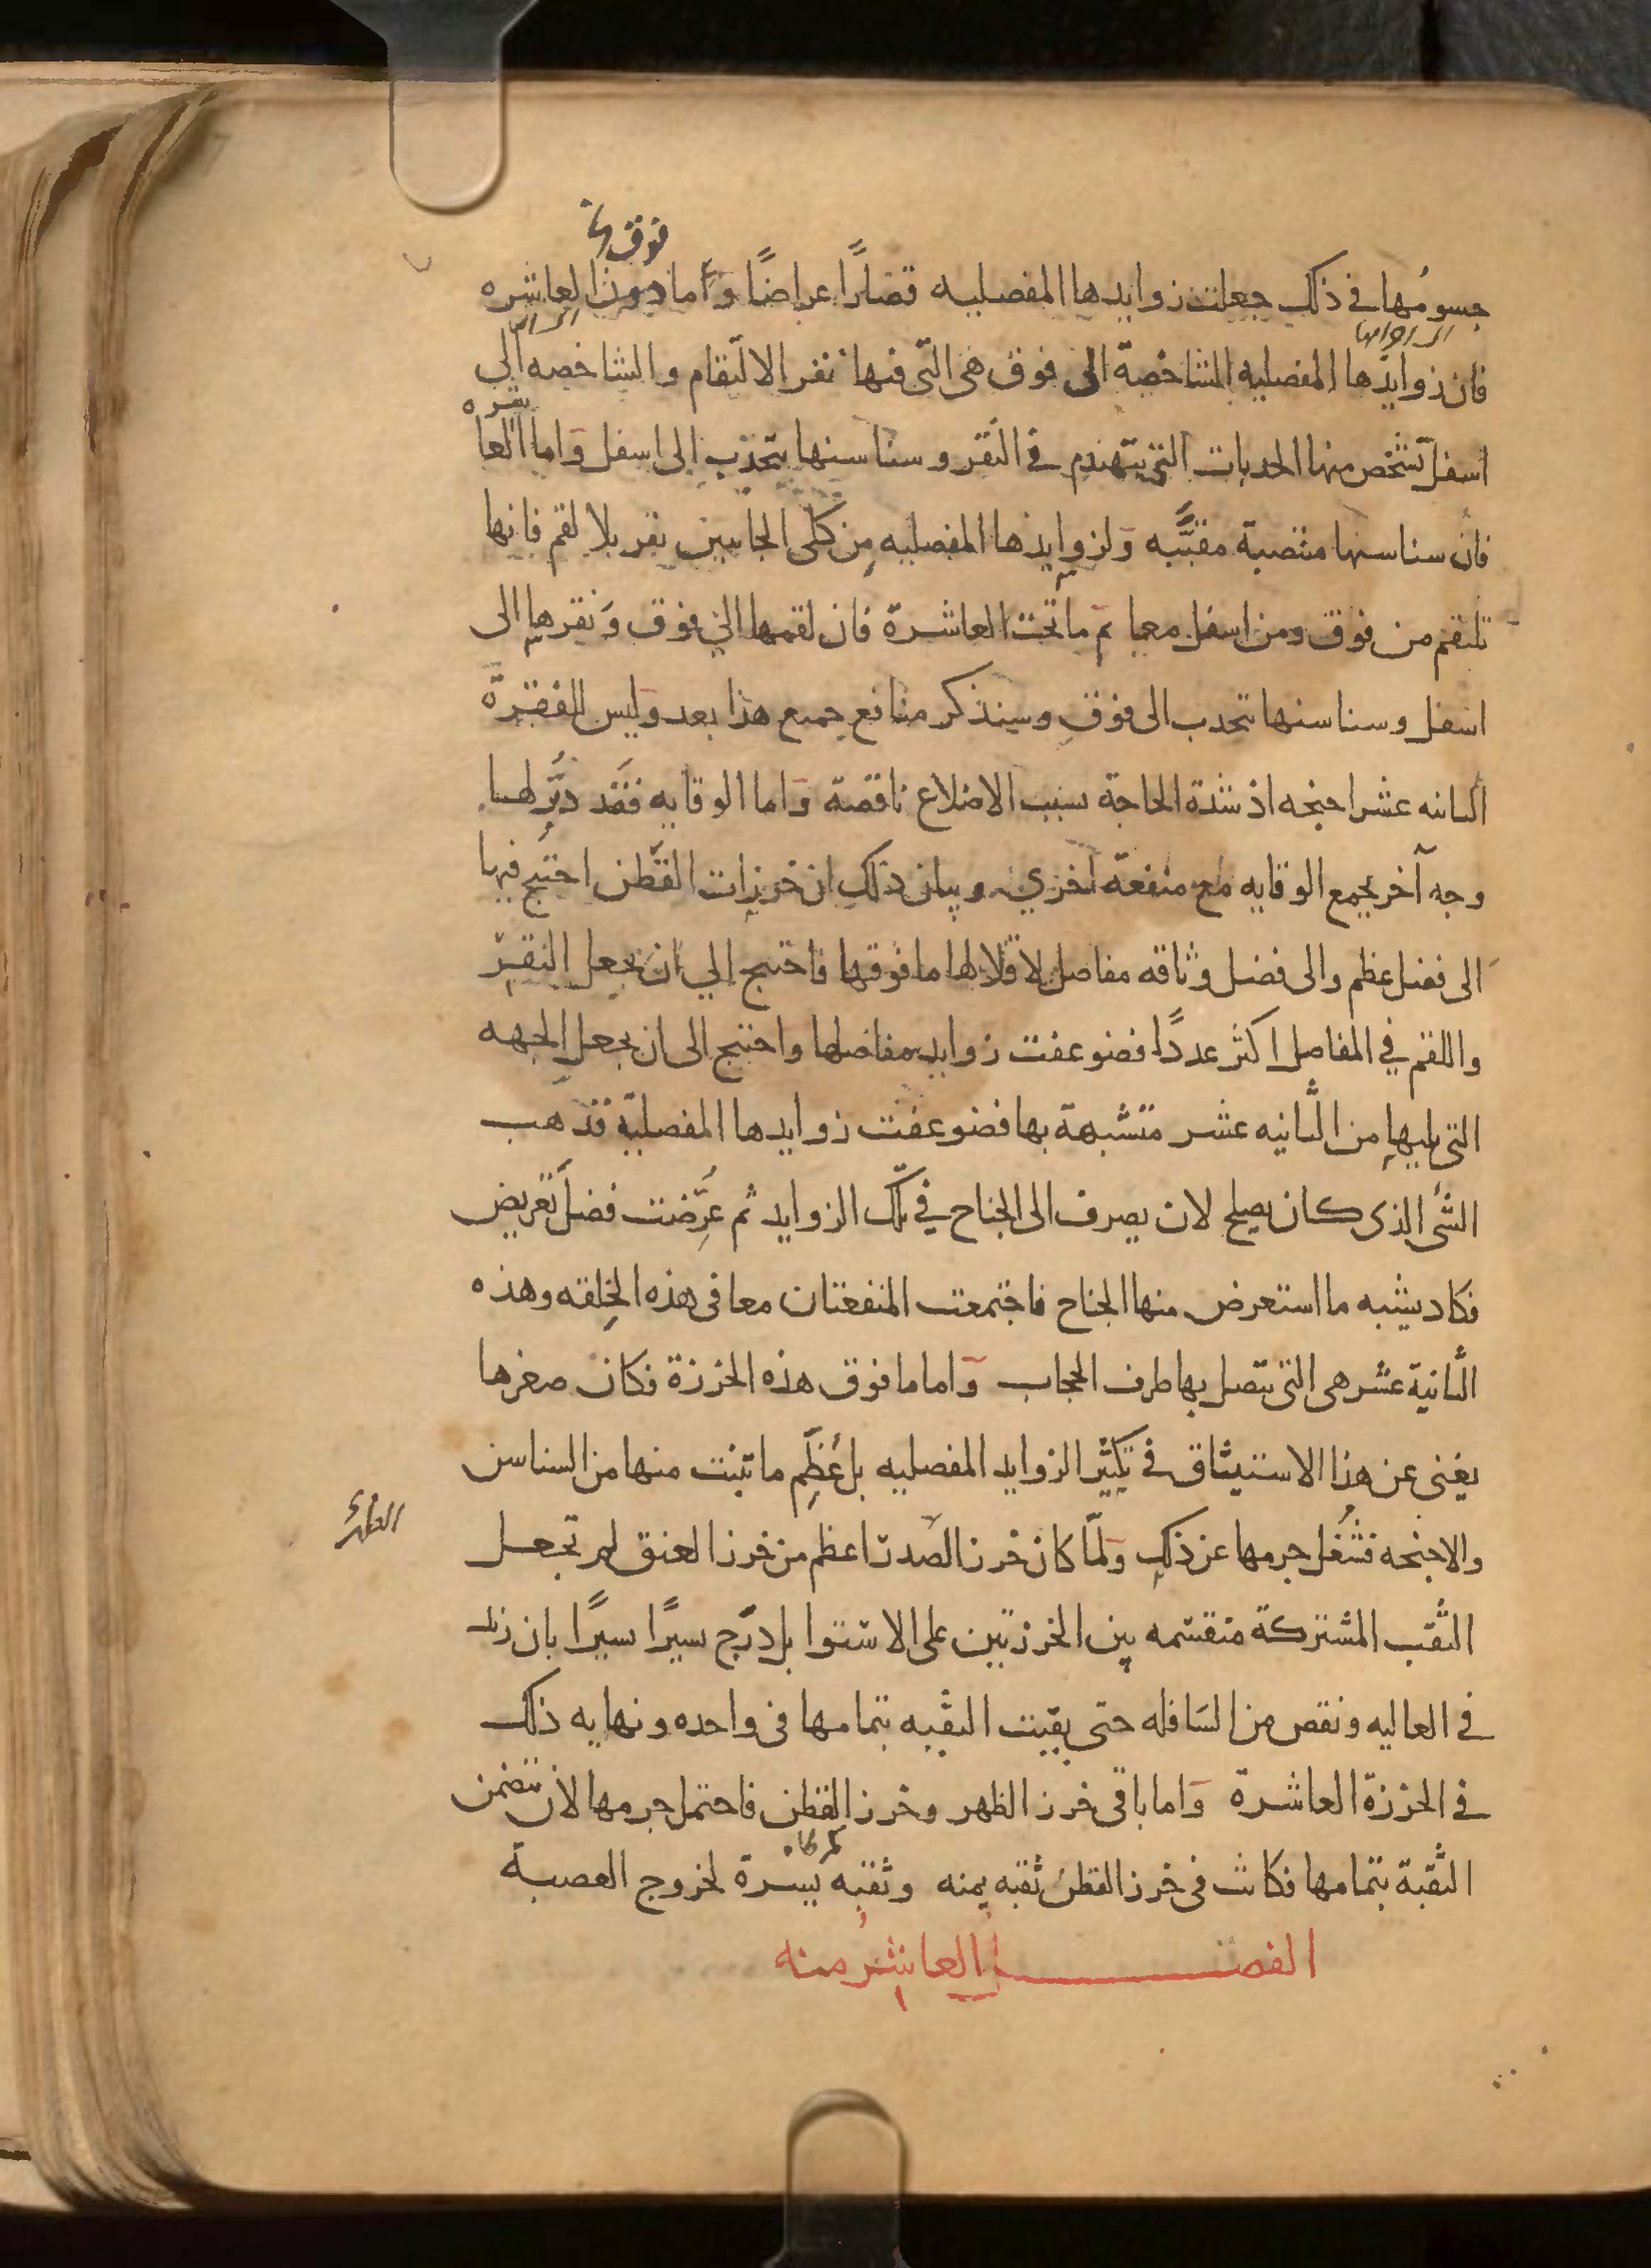 فوق
جسومها في ذلك جعلت زوايدها المفصليه قصارًا عراضًا وأما دون العاشره
فان زوايدها المفصليه الشاخصة الى فوق هى التى فيها نقر الالتقام والشاخصه الي
اسفل تشخص منها الحدبات التى تتهندم في النقر وسناسنها تتحدب الى اسفل واما العاشره
فان سناسنها منتصبة مقببه ولزوايدها المفصليه من كلى الجانبين نقر بلا لقم فانها
تلتقم من فوق ومن اسفل معا ثم ما تحت العاشرة فان لقمها الي فوق ونقرها الى
اسفل وسناسنها تتحدب الى فوق وسنذكر منافع جميع هذا بعد وليس للفقرة
الثانيه عشر اجنحه اذ شدة الحاجة بسبب الاضلاع ناقصة واما الوقايه فقد دبر لها
وجه آخر يجمع الوقايه مع منفعة اخري وبيان ذلك ان خرزات القطن احتيج فيها
الى فضل عظم والى فضل وثاقه مفاصل لاقلالها ما فوقها فاحتيج الي ان يجعل النقر
واللقم في المفاصل اكثر عددًا فضوعفت زوايد مفاصلها واحتيج الى ان يجعل الجهه
التى تليها من الثانيه عشر متشبهة بها فضوعفت زوايدها المفصلية فذهب
الشى الذى كان يصلح لان يصرف الى الجناح في تلك الزوايد ثم عرضت فضل تعريض
فكاد يشبه ما استعرض منها الجناح فاجتمعت المنفعتان معا فى هذه الخلقه وهذه
الثانية عشر هى التى يتصل بها طرف الحجاب واما ما فوق هذه الخرزة فكان صغرها
يغنى عن هذا الاستيثاق في تكثير الزوايد المفصليه بل عظم ما تنبت منها من السناسن
والاجنحه فشغل جرمها عن ذلك ولما كان خرز الصدر اعظم من خرز العنق لم تجعل
الثقب المشتركة منقسمه بين الخرزتين على الاستوا بل درج سيرًا سيرًا بان زيد
في العاليه ونقص من السافله حتى بقيت الثقبه بتمامها فى واحده ونهايه ذلك
في الخرزة العاشرة واما باقى خرز الظهر وخرز القطن فاحتمل جرمها لان تتضمن
الثقبة بتمامها فكانت فى خرز القطن ثقبه يمنه وثقبه يسرة لخروج العصبة
الفصل العاشر منه